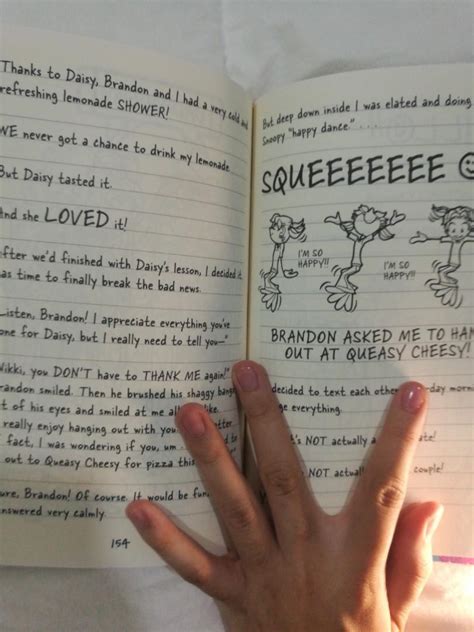 Thanks to Daisy, Brandon and I had a very cold and
refreshing lemonade SHOWER!
WE never got a chance to drink my lemonade.
But Daisy tasted it.
And she LOVED it!
After we'd finished with Daisy's lesson, I decided it
was time to finally break the bad news.
"Listen, Brandon! I appreciate everything you've
done for Daisy, but I really need to tell you—"
"Nikki, you DON'T have to THANK ME again!"
Brandon smiled. Then he brushed his shaggy bangs
out of his eyes and smiled at me all
really enjoy hanging out with you
fact, I was wondering if you, um
out to Queasy Cheesy for pizza this
"Sure, Brandon! Of course. It would be fun
answered very calmly.
154
But deep down inside I was elated and doing
Snoopy "happy dance"
SQUEEEEEEE
I'M SO
HAPPY!!!
I'M SO
HAPPY!!!
BRANDON ASKED ME TO HAN
OUT AT QUEASY CHEESY!
decided to text each other day morn
ge everything.
NOT actually a ate!
NOT actual couple!